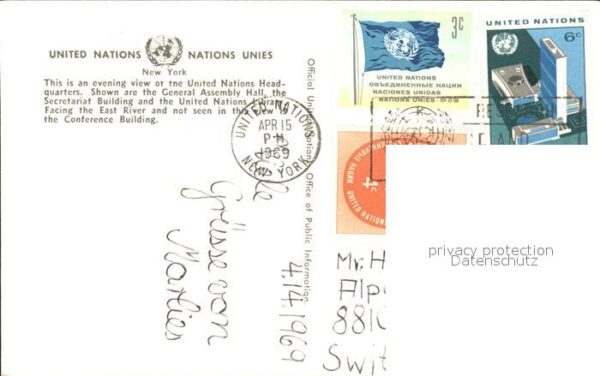 UNITED NATIONS NATIONS UNIES
New York
This is an evening view of the United Nations Head-
quarters. Shown are the General Assembly Hall, the
Secretariat Building and the United Nations
Facing the East River and not seen in this view is
the Conference Building.
UNITED NATIONS
APR 15
P M
1969
NEW YORK
Official United Nations Office of Public Information
3c
UNITED NATIONS
ОБЪЕДИНЕННЫЕ НАЦИИ
NACIONES UNIDAS
NATIONS UNIES
UNITED NATIONS
6c
4c
UNITED NATIONS
Grüsse von
Marlies
4.14.1969
Mr. H
Alp
8810
Swit
privacy protection
Datenschutz